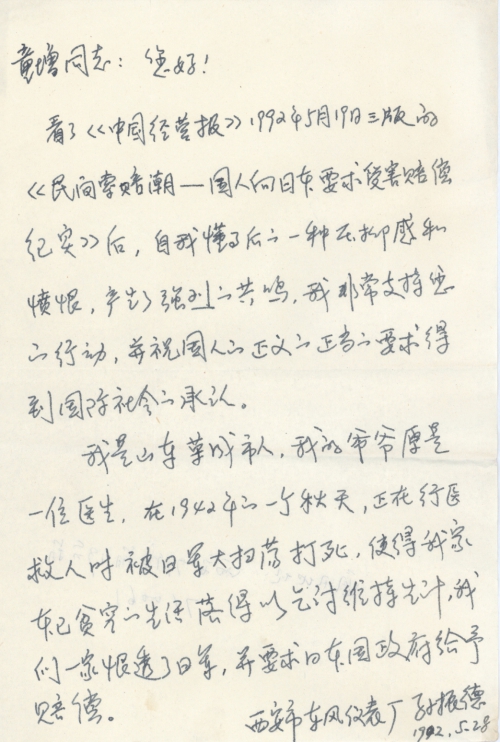 童增同志：您好！
看了《中国经营报》1992年5月19日三版的
《民间索赔潮——国人向日本要求受害赔偿
纪实》后，自我懂事后的一种压抑感和
愤恨，产生了强烈的共鸣，我非常支持您
的行动，并祝国人的正义的正当的要求得
到国际社会的承认。
我是山东莱城市人，我的爷爷原是
一位医生，在1942年的一个秋天，正在行医
救人时被日军大扫荡打死，使得我家
本已贫穷的生活落得以乞讨维持生计，我
们一家恨透了日军，并要求日本国政府给予
赔偿。
西安市东风仪表厂 孙振德
1992.5.28